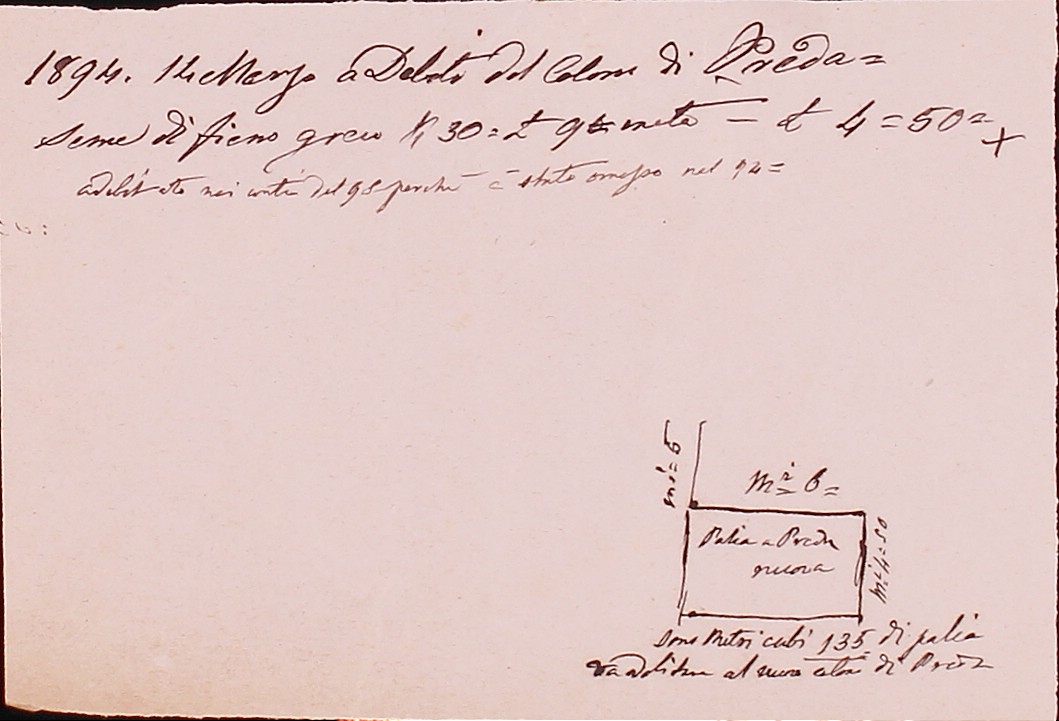 1894. 14 Marzo a Debito del Colono di Preda=
Seme di fieno greco K 30= £ 9 metà — £ 4=50=
adebitato nei conti del 95 perché è stato omesso nel 94=
mi= 5
Mri= 6=
Palia a Preda
nuova
Mi 4=50
Sono Metri cubi 135 di palia
al nuovo colono di Preda